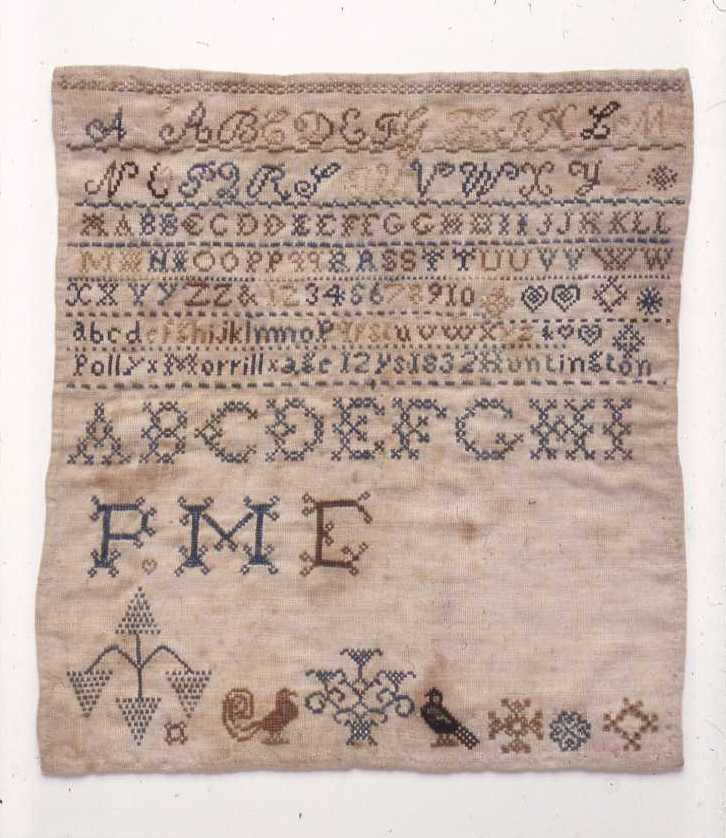 A A B C D E F G H I K L M
N O P Q R S T U V W X Y Z
A A B B C C D D E E F F G G H H I I J J K K L L
M M N N O O P P q q R R S S T T U U V V W W
X X Y Y Z Z & 1 2 3 4 5 6 7 8 9 10
a b c d e f g h i j k l m n o p q r s t u v w x y z
Polly x Morrill x age 12 ys 1832 Huntington
A B C D E F G H I
P M E